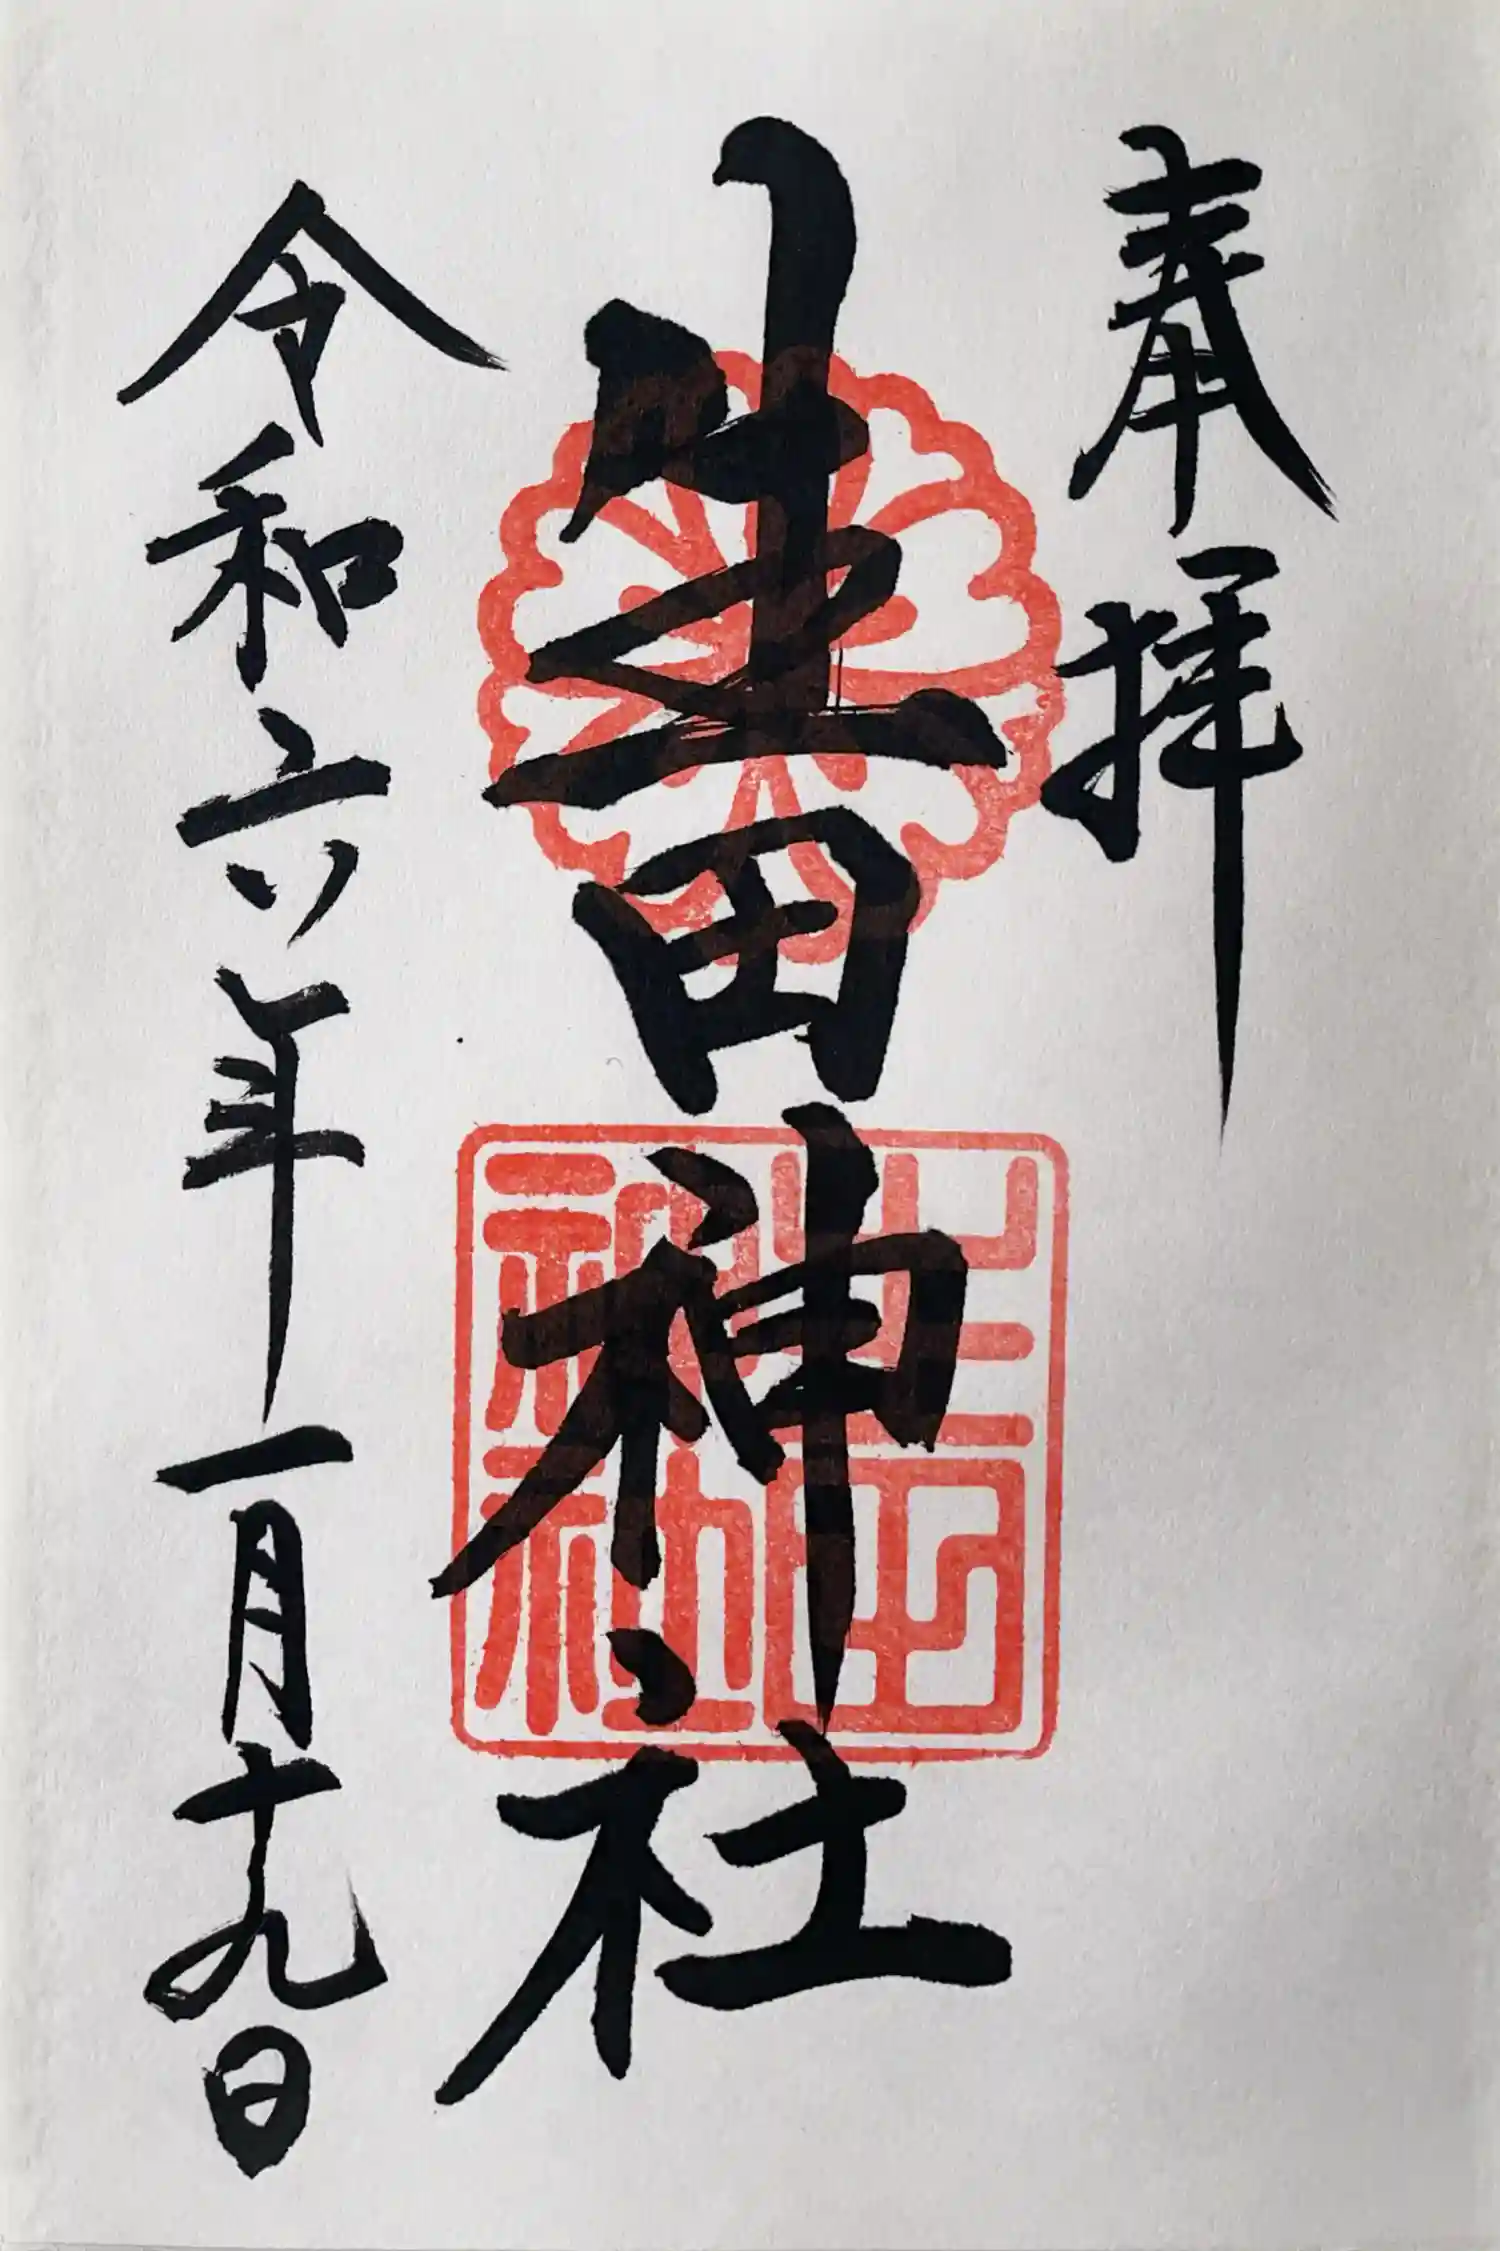 奉拝
生田神社
生田
神社
令和六年一月十九日